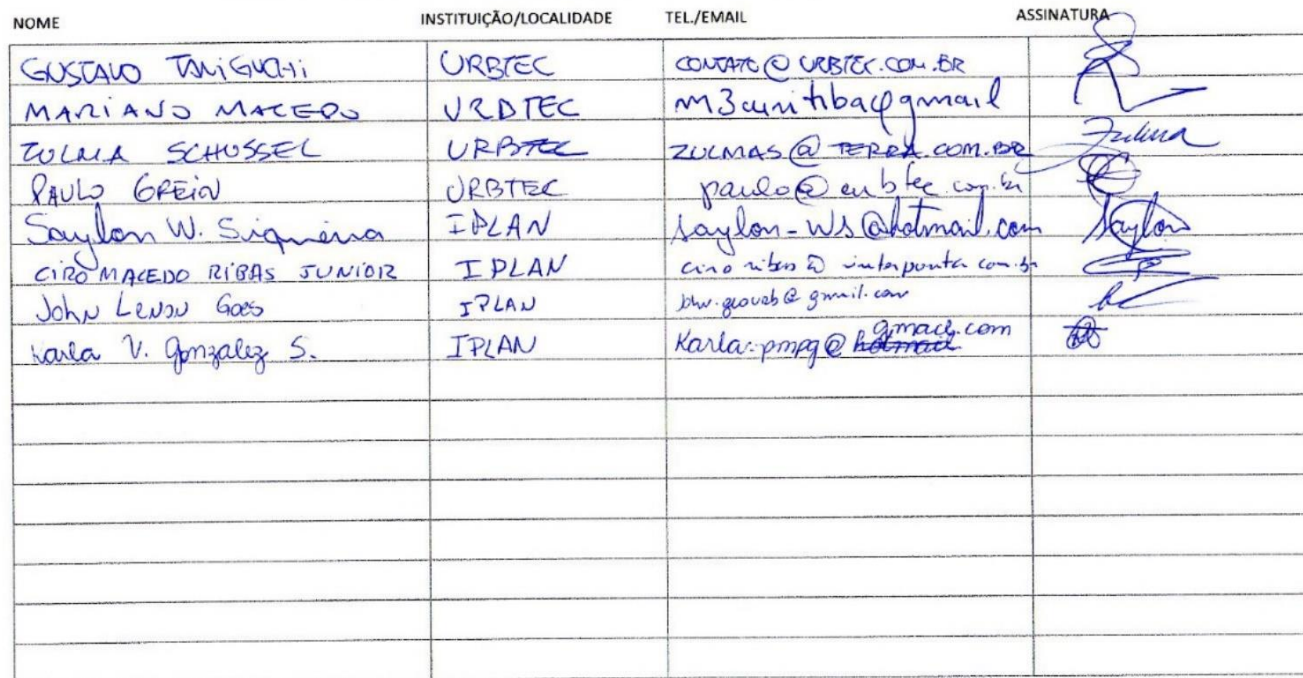 NOME INSTITUIÇÃO/LOCALIDADE TEL./EMAIL ASSINATURA
GUSTAVO TANIGUCHI URBTEC CONTATO@URBTEC.COM.BR
MARIANO MACEDO URBTEC m3curitiba@gmail
ZULMA SCHUSSEL URBTEC ZULMAS@TERRA.COM.BR Zulma
PAULO GREIN URBTEC paulo@urbtec.com.br
Saylon W. Siqueira IPLAN saylon-ws@hotmail.com Saylon
CIRO MACEDO RIBAS JUNIOR IPLAN
John Lenon Goes IPLAN
Karla V. Gonzalez S. IPLAN Karla.pmpg@hotmail gmail.com